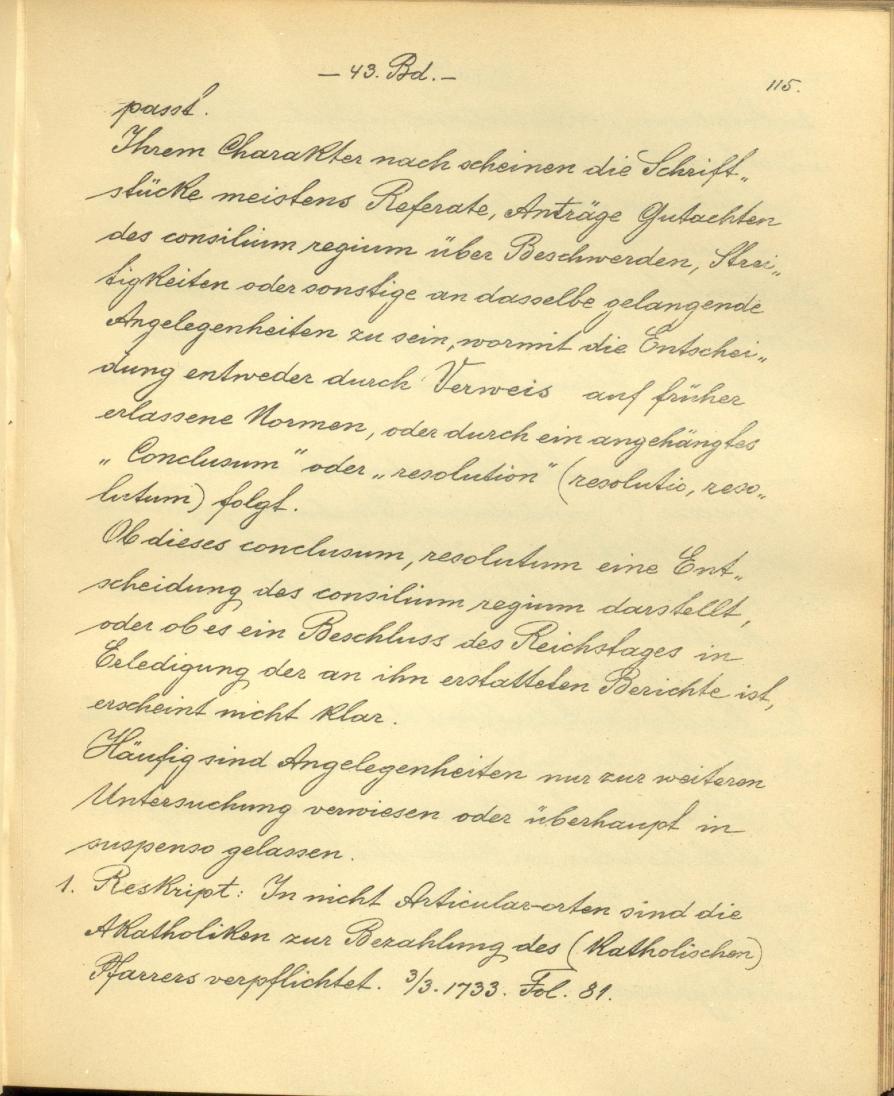 — 43. Bd. —
115.
passt.
Ihrem Charakter nach scheinen die Schrift„
stücke meistens Referate, Anträge Gutachten
des consilium regium über Beschwerden, Strei„
tigkeiten oder sonstige an dasselbe gelangende
Angelegenheiten zu sein, wormit die Entschei„
dung entweder durch Verweis auf früher
erlassene Normen, oder durch ein angehängtes
„Conclusum" oder „resolution" (resolutio, reso„
lutum) folgt.
Ob dieses conclusum, resolutum eine Ent„
scheidung des consilium regium darstellt,
oder ob es ein Beschluss des Reichstages in
Erledigung der an ihn erstatteten Berichte ist,
erscheint nicht klar.
Häufig sind Angelegenheiten nur zur weiteren
Untersuchung verwiesen oder überhaupt in
suspenso gelassen.
1. Reskript: In nicht Articular-orten sind die
Akatholiken zur Bezahlung des (Katholischen)
Pfarrers verpflichtet. 3/3. 1733. Fol. 81.